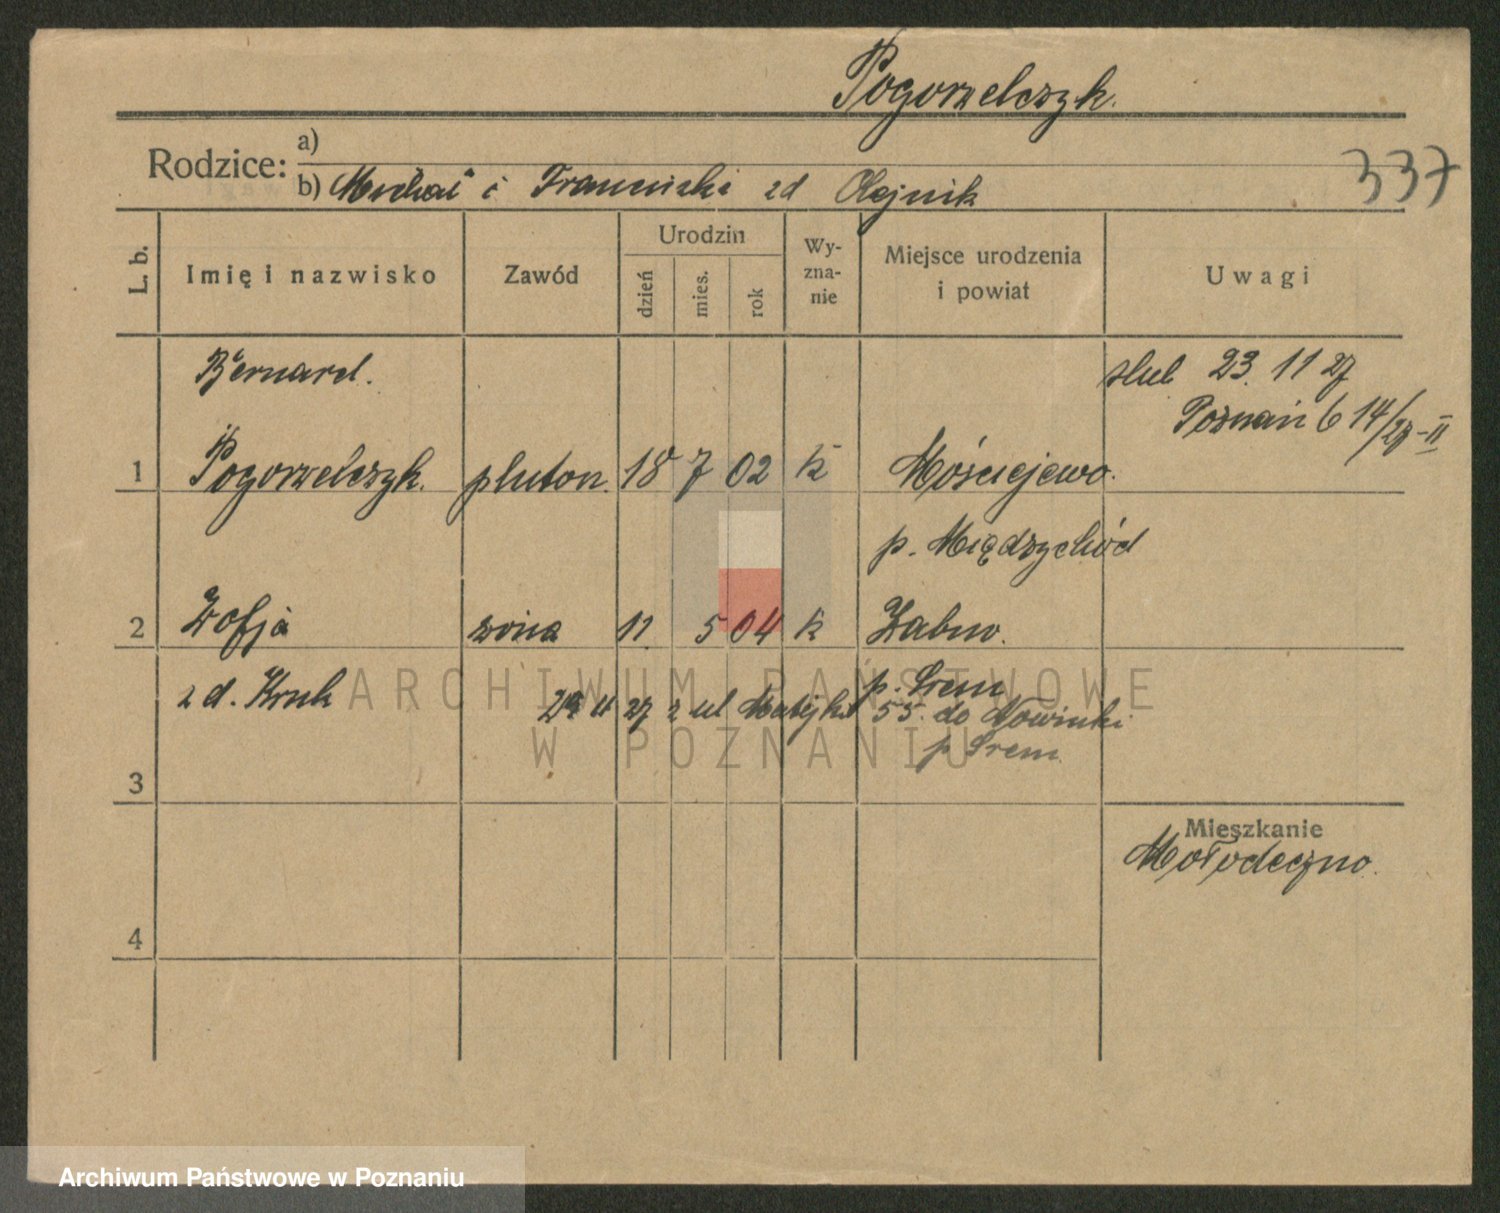 Pogorzelczyk.
Rodzice: a)
b) Michał i Franciszki zd Olejnik
337
L. b.
Imię i nazwisko
Zawód
Urodzin
dzień
mies.
rok
Wy-
zna-
nie
Miejsce urodzenia
i powiat
Uwagi
Bernard.
ślub 23. 11 27
Poznań 6 14/27-II
1 Pogorzelczyk. pluton. 18 7 02 k Mościejewo.
p. Międzychód
2 Zofja żona 11 5 04 k Żabno.
zd. Kruk
p. Śrem
27 2 ul Matejki 55. do Nowinki
p Śrem
3
Mieszkanie
Mołodeczno.
4
ARCHIWUM PAŃSTWOWE
W POZNANIU
Archiwum Państwowe w Poznaniu